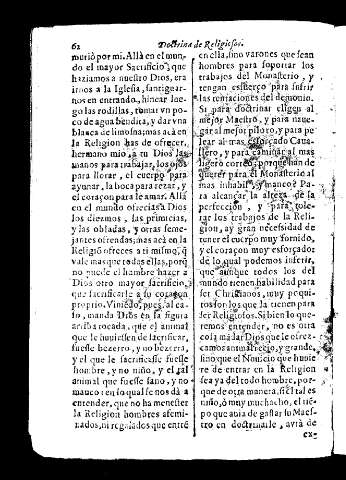 62
Doctrina de Religiosos.
murió por mi. Allà en el mun-
do el mayor Sacrificio, que
haziamos a nuestro Dios, era
irnos a la Iglesia, santiguar-
nos en entrando, hincar lue-
go las rodillas, tomar vn po-
co de agua bendita, y dar vna
blanca de limosna; mas acà en
la Religion has de ofrecer,
hermano mio, a tu Dios las
manos para trabajar, los ojos
para llorar, el cuerpo para
ayunar, la boca para rezar, y
el coraçon para le amar. Allà
en el mundo ofrecias a Dios
los diezmos, las primicias,
y las obladas, y otras seme-
jantes ofrendas; mas acà en la
Religiõ ofreces a ti mismo, q̃
vale mas que todas ellas, porq̃
no puede el hombre hazer a
Dios otro mayor sacrificio,
que sacrificarle a su coraçon
proprio. Viniẽdo, pues, al ca-
so, manda Dios en la figura
arriba tocada, que el animal
que le huuiessen de sacrificar,
fuesse bezerro, y no bezerra,
y el que le sacrificasse fuesse
hombre, y no niño, y el tal
animal que fuesse sano, y no
manco: en lo qual se nos dà a
entender, que no ha menester
la Religion hombres afemi-
nados, ni regalados que entrẽ
en ella, sino varones que sean
hombres para soportar los
trabajos del Monasterio, y
tengan esfuerço para sufrir
las tentaciones del demonio.
Si para doctrinar eligen al
mejor Maestro, y para naue-
gar al mejor piloto, y para pe-
lear al mas esforçado Caua-
llero, y para caminar al mas
ligero correo; porque han de
querer para el Monasterio al
mas inhabil, y manco? Pa-
ra alcançar la alteza de la
perfeccion, y para tole-
rar los trabajos de la Reli-
gion, ay gran necessidad de
tener el cuerpo muy fornido,
y el coraçon muy esforçador
de lo qual podemos inferir,
que aunque todos los del
mundo tienen habilidad para
ser Christianos, muy poqui-
tos son los que la tienen para
ser Religiosos. Si bien lo que-
remos entender, no es otra
cosa mãdar Dios que le ofrez-
camos animal recio, y grande,
sino que el Nouicio que huuie
re de entrar en la Religion
sea ya del todo hombre, por-
que de otra manera, si el tal es
niño, ò muy muchacho, el tiẽ-
po que auia de gastar su Maes-
tro en doctrinarle, avrà de
ex-